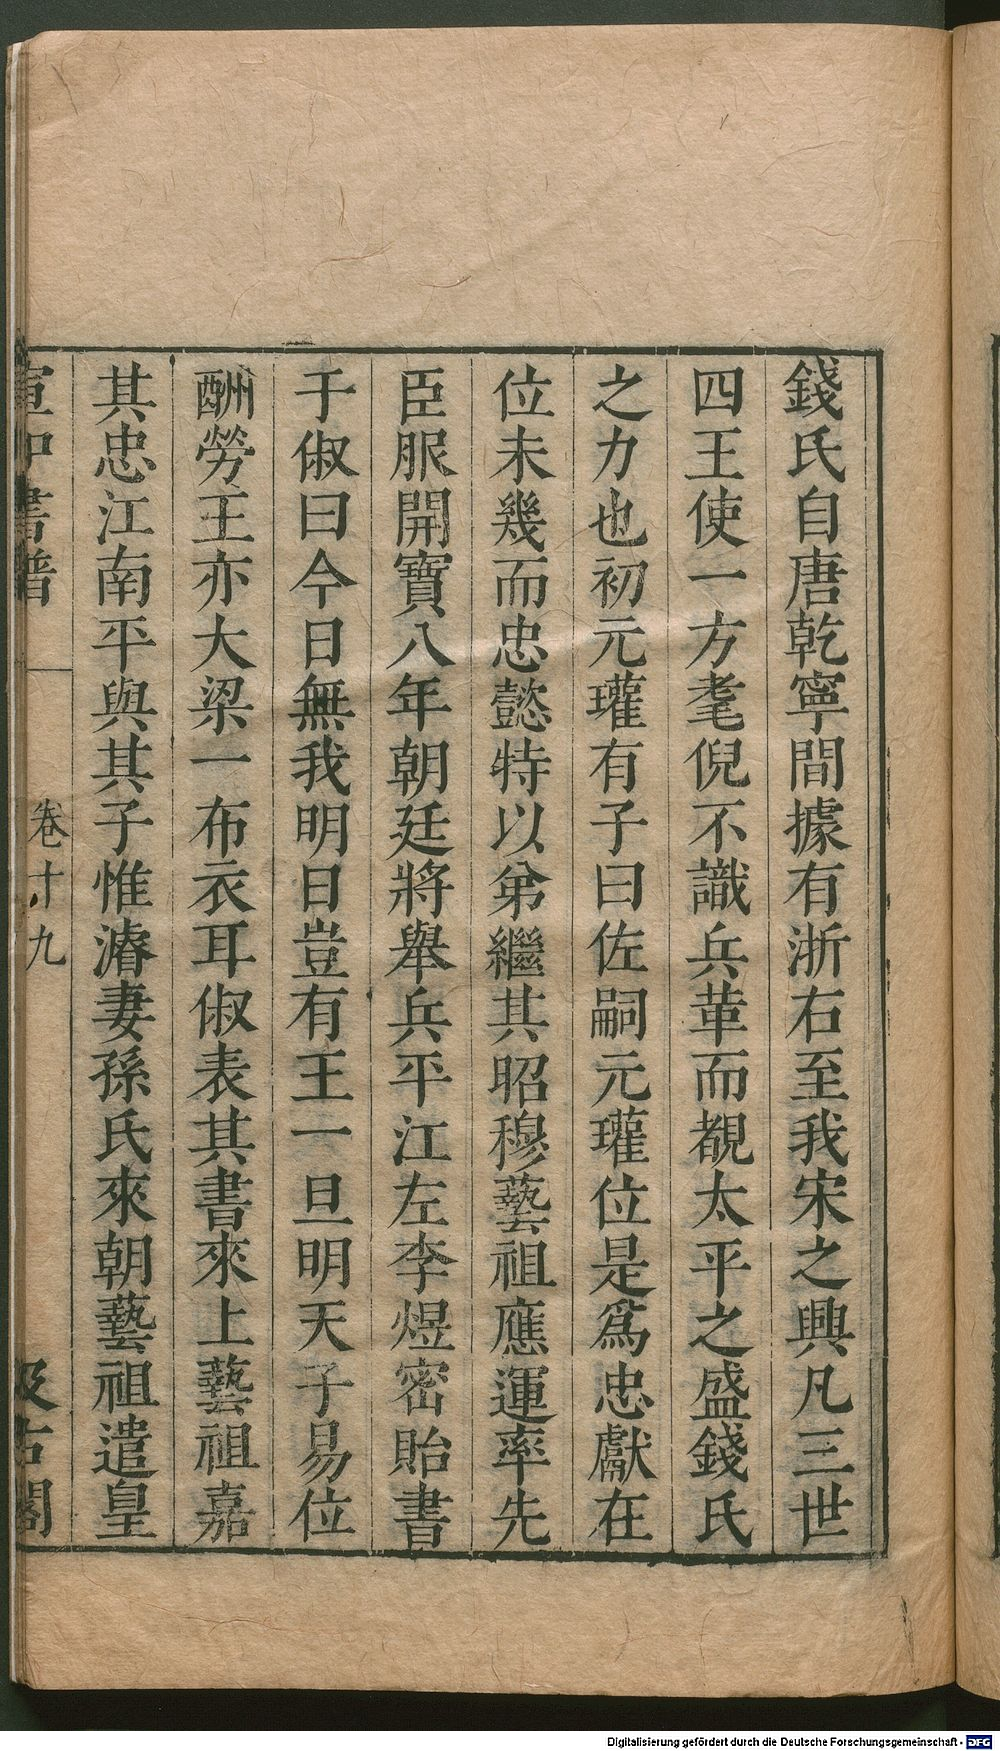 錢氏自唐乾寧間據有浙右至我宋之興凡三世
四王使一方耄倪不識兵革而覩太平之盛錢氏
之力也初元瓘有子曰佐嗣元瓘位是爲忠獻在
位未幾而忠懿特以弟繼其昭穆藝祖應運率先
臣服開寶八年朝廷將舉兵平江左李煜密貽書
于俶曰今日無我明日豈有王一旦明天子易位
酬勞王亦大梁一布衣耳俶表其書來上藝祖嘉
其忠江南平與其子惟濬妻孫氏來朝藝祖遣皇
宣和書譜 卷十九 汲古閣
Digitalisierung gefördert durch die Deutsche Forschungsgemeinschaft - DFG